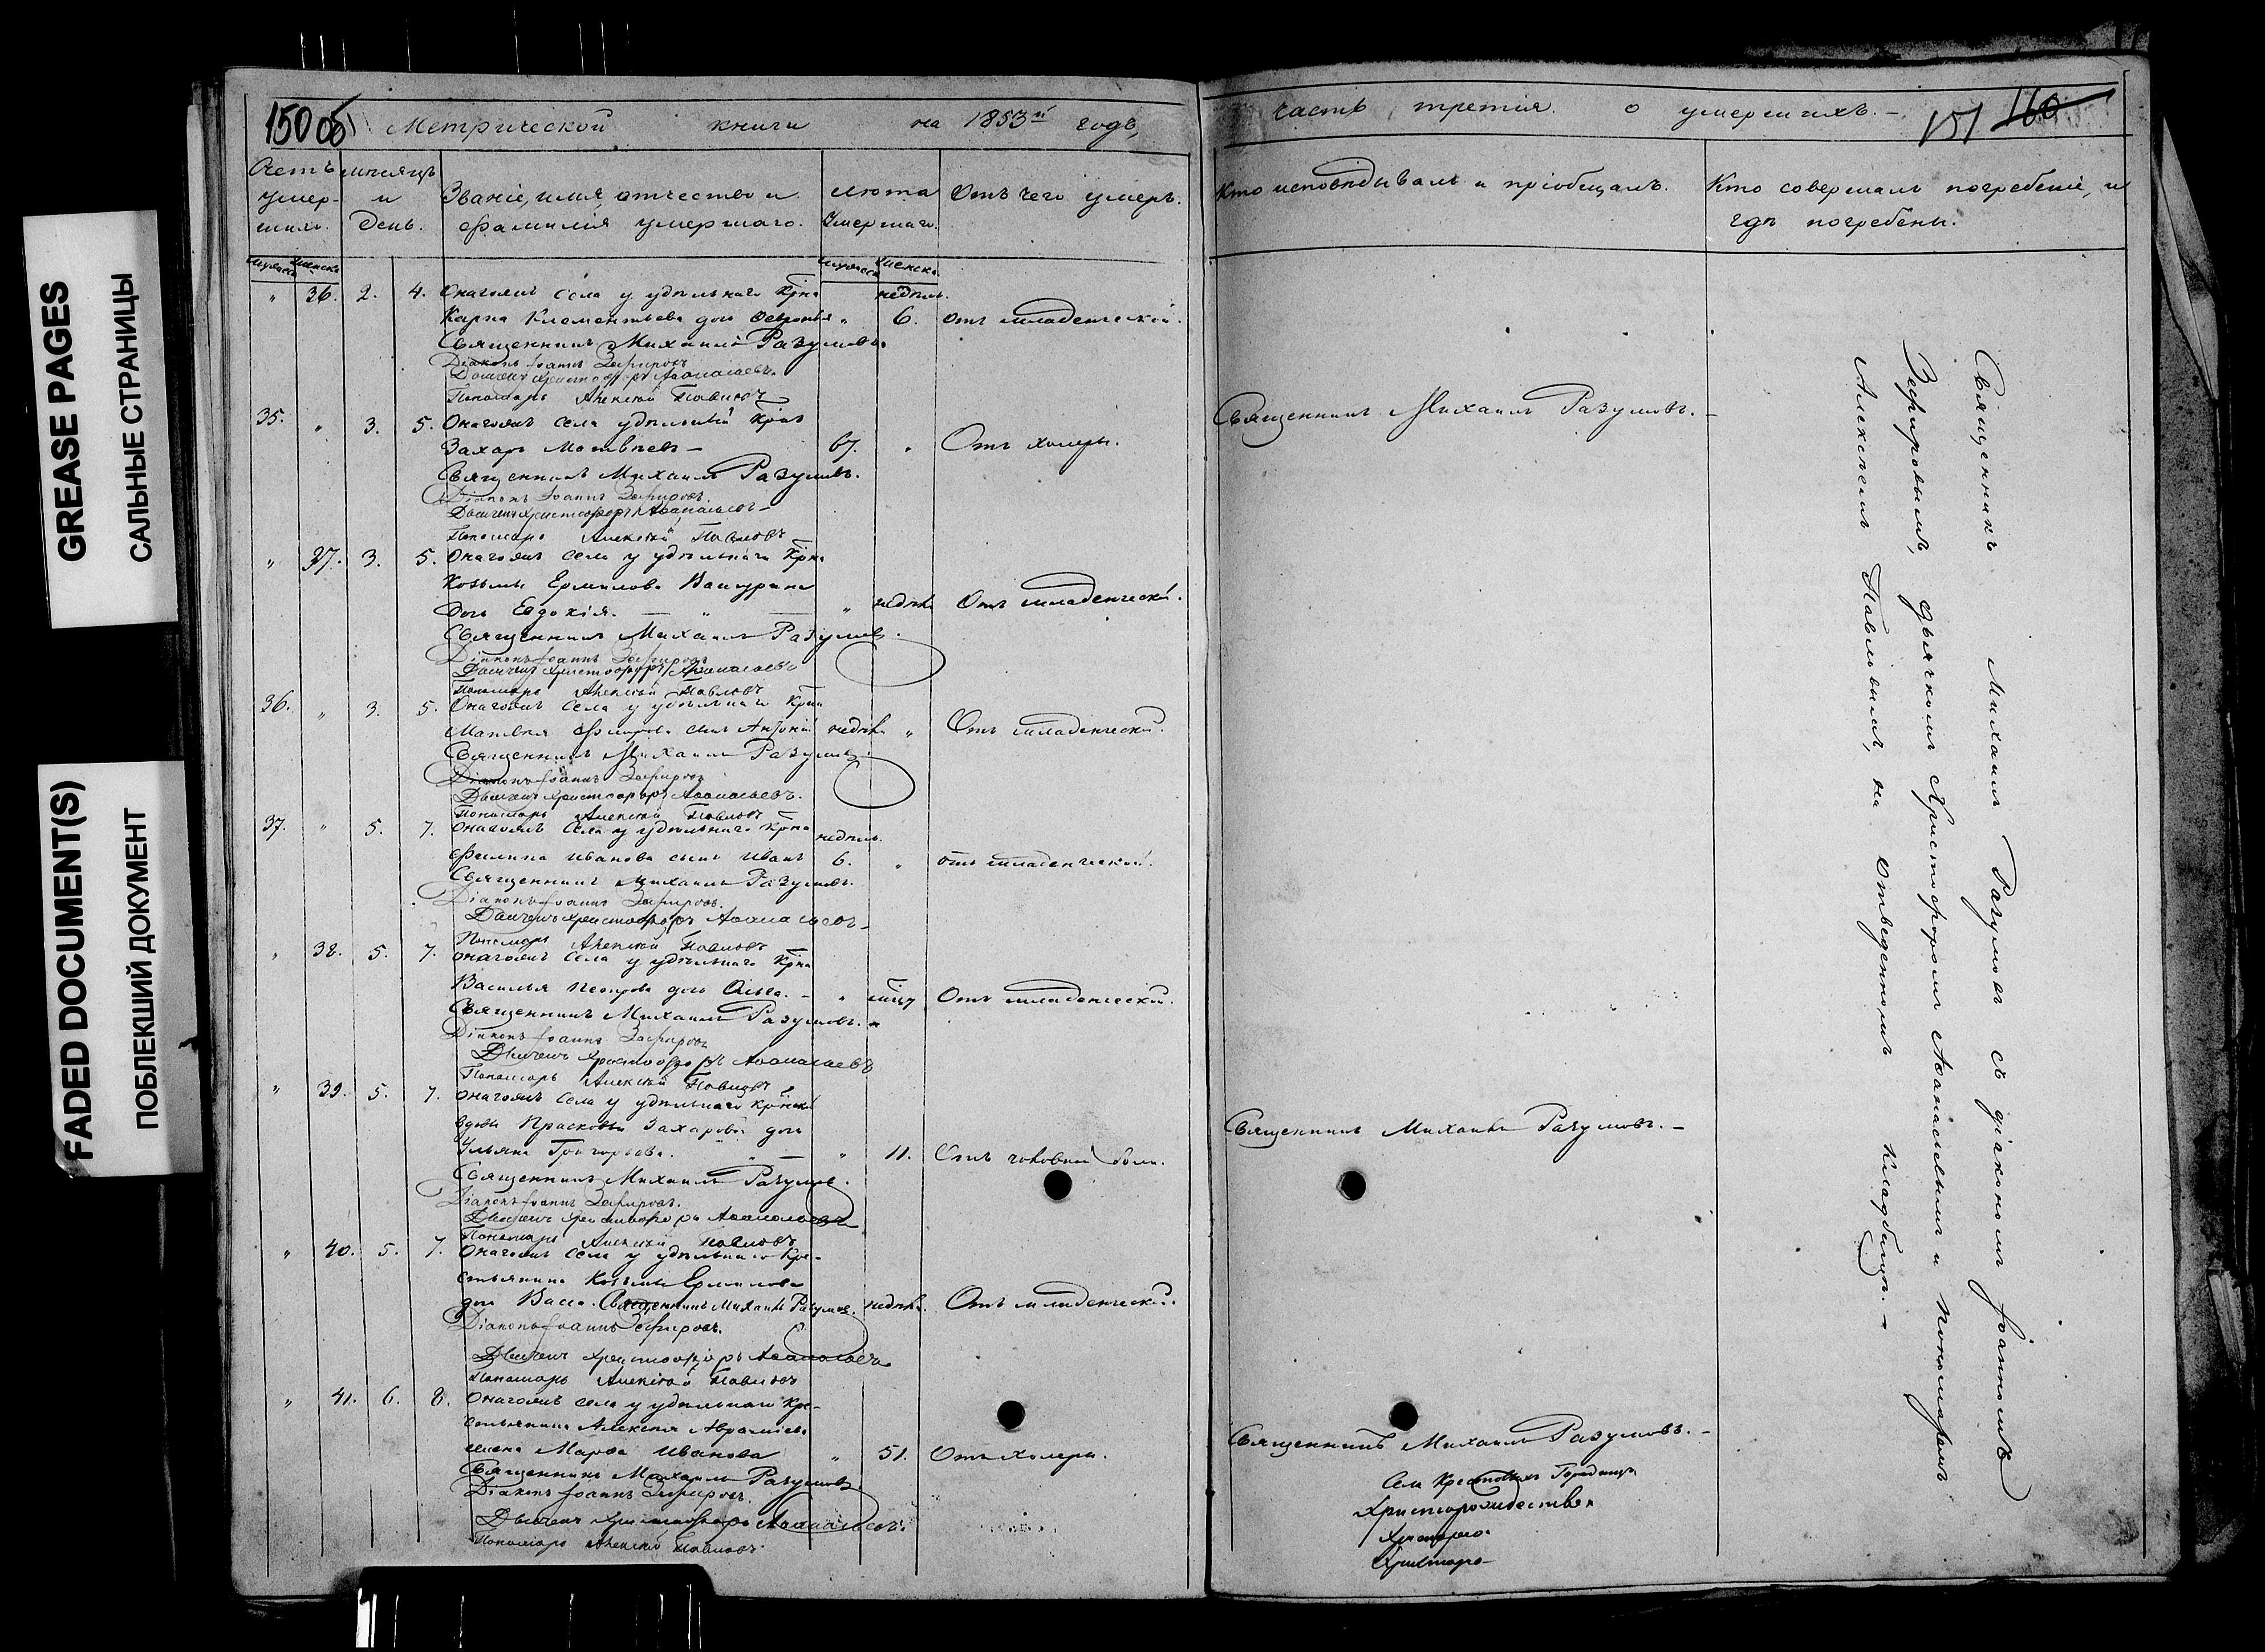 GREASE PAGES
САЛЬНЫЕ СТРАНИЦЫ
FADED DOCUMENT(S)
ПОБЛЕКШИЙ ДОКУМЕНТ
150 об
Метрической книги на 1853й годъ,
Счетъ умер-шихъ.
Мѣсяцъ и день.
Званіе, имя, отчество и фамилія умершаго.
Лѣта умершаго.
Отъ чего умеръ.
" 36. 2. 4. Онагожъ села у удѣльнаго Крна недѣль.
Карпа Климентьева дочь " 6. отъ младенческой.
Священникъ Михаилъ Разумовъ.
Діаконъ Іоаннъ Зефировъ
Дьячекъ Христофоръ Аѳанасьевъ
Пономарь Алексѣй Павловъ
35. " 3. 5. Онагожъ села удѣльный Крнъ
Захаръ Матвѣевъ — 67. " Отъ холеры.
Священникъ Михаилъ Разумовъ.
Діаконъ Іоаннъ Зефировъ.
Дьячекъ Христофоръ Аѳанасьевъ
Пономарь Алексѣй Павловъ
" 37. 3. 5. Онагожъ села у удѣльнаго Крна
Козьмы Ермилова
дочь Евдокія. — " — " недѣли Отъ младенческой.
Священникъ Михаилъ Разумовъ.
Діаконъ Іоаннъ Зефировъ
Дьячекъ Христофоръ Аѳанасьевъ
Пономарь Алексѣй Павловъ
36. " 3. 5. Онагожъ села у удѣльнаго Крна
Матвѣя сынъ Антоній недѣли " Отъ младенческой.
Священникъ Михаилъ Разумовъ.
Діаконъ Іоаннъ Зефировъ
Дьячекъ Христофоръ Аѳанасьевъ.
Пономарь Алексѣй Павловъ
37. " 5. 7. Онагожъ села у удѣльнаго Крна недѣль.
Филиппа Иванова сынъ Иванъ 6. " отъ младенческой.
Священникъ Михаилъ Разумовъ.
Діаконъ Іоаннъ Зефировъ.
Дьячекъ Христофоръ Аѳанасьевъ
Пономарь Алексѣй Павловъ
" 38. 5. 7. Онагожъ села у удѣльнаго Крна
Василья Петрова дочь — " Отъ младенческой.
Священникъ Михаилъ Разумовъ.
Діаконъ Іоаннъ Зефировъ
Дьячекъ Христофоръ Аѳанасьевъ
Пономарь Алексѣй Павловъ
" 39. 5. 7. Онагожъ села у удѣльнаго
вдовы Прасковьи Захаровой дочь
Ульяна Григорьева. " — " 11. Отъ головной боли.
Священникъ Михаилъ Разумовъ.
Діаконъ Іоаннъ Зефировъ.
Дьячекъ Христофоръ Аѳанасьевъ
Пономарь Алексѣй Павловъ
" 40. 5. 7. Онагожъ села у удѣльнаго Кре-
стьянина Козьмы Ермилова
дочь Васса. Священникъ Михаилъ Разумовъ. недѣли. Отъ младенческой.
Діаконъ Іоаннъ Зефировъ.
Дьячекъ Христофоръ Аѳанасьевъ
Пономарь Алексѣй Павловъ
" 41. 6. 8. Онагожъ села у удѣльнаго Кре-
стьянина Алексѣя Авраміева
жена Марѳа Иванова " 51. Отъ холеры.
Священникъ Михаилъ Разумовъ
Діаконъ Іоаннъ Зефировъ.
Дьячекъ Христофоръ Аѳанасьевъ
Пономарь Алексѣй Павловъ
часть третія о умершихъ. —
151 160
Кто исповѣдывалъ и пріобщалъ.
Кто совершалъ погребеніе, и гдѣ погребены.
Священникъ Михаилъ Разумовъ. —
Священникъ Михаилъ Разумовъ. —
Священникъ Михаилъ Разумовъ. —
Села Крестовыхъ Городищъ
Христорождествен
Христорго
Христоро-
Священникъ Михаилъ Разумовъ съ діакономъ Іоанномъ
Зефировымъ, дьячкомъ Христофоромъ Аѳанасьевымъ и пономаремъ
Алексѣемъ Павловымъ, на отведенномъ кладбищѣ. —